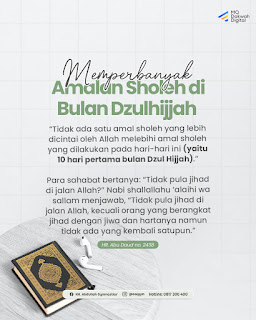 MQ
Dakwah
Digital
Memperbanyak
Amalan Sholeh di
Bulan Dzulhijjah
"Tidak ada satu amal sholeh yang lebih
dicintai oleh Allah melebihi amal sholeh
yang dilakukan pada hari-hari ini (yaitu
10 hari pertama bulan Dzul Hijjah)."
Para sahabat bertanya: "Tidak pula jihad
di jalan Allah?" Nabi shallallahu 'alaihi wa
sallam menjawab, "Tidak pula jihad di
jalan Allah, kecuali orang yang berangkat
jihad dengan jiwa dan hartanya namun
tidak ada yang kembali satupun."
HR. Abu Daud no. 2438
KH. Abdullah Gymnastiar
Hotline: 0817 200 400